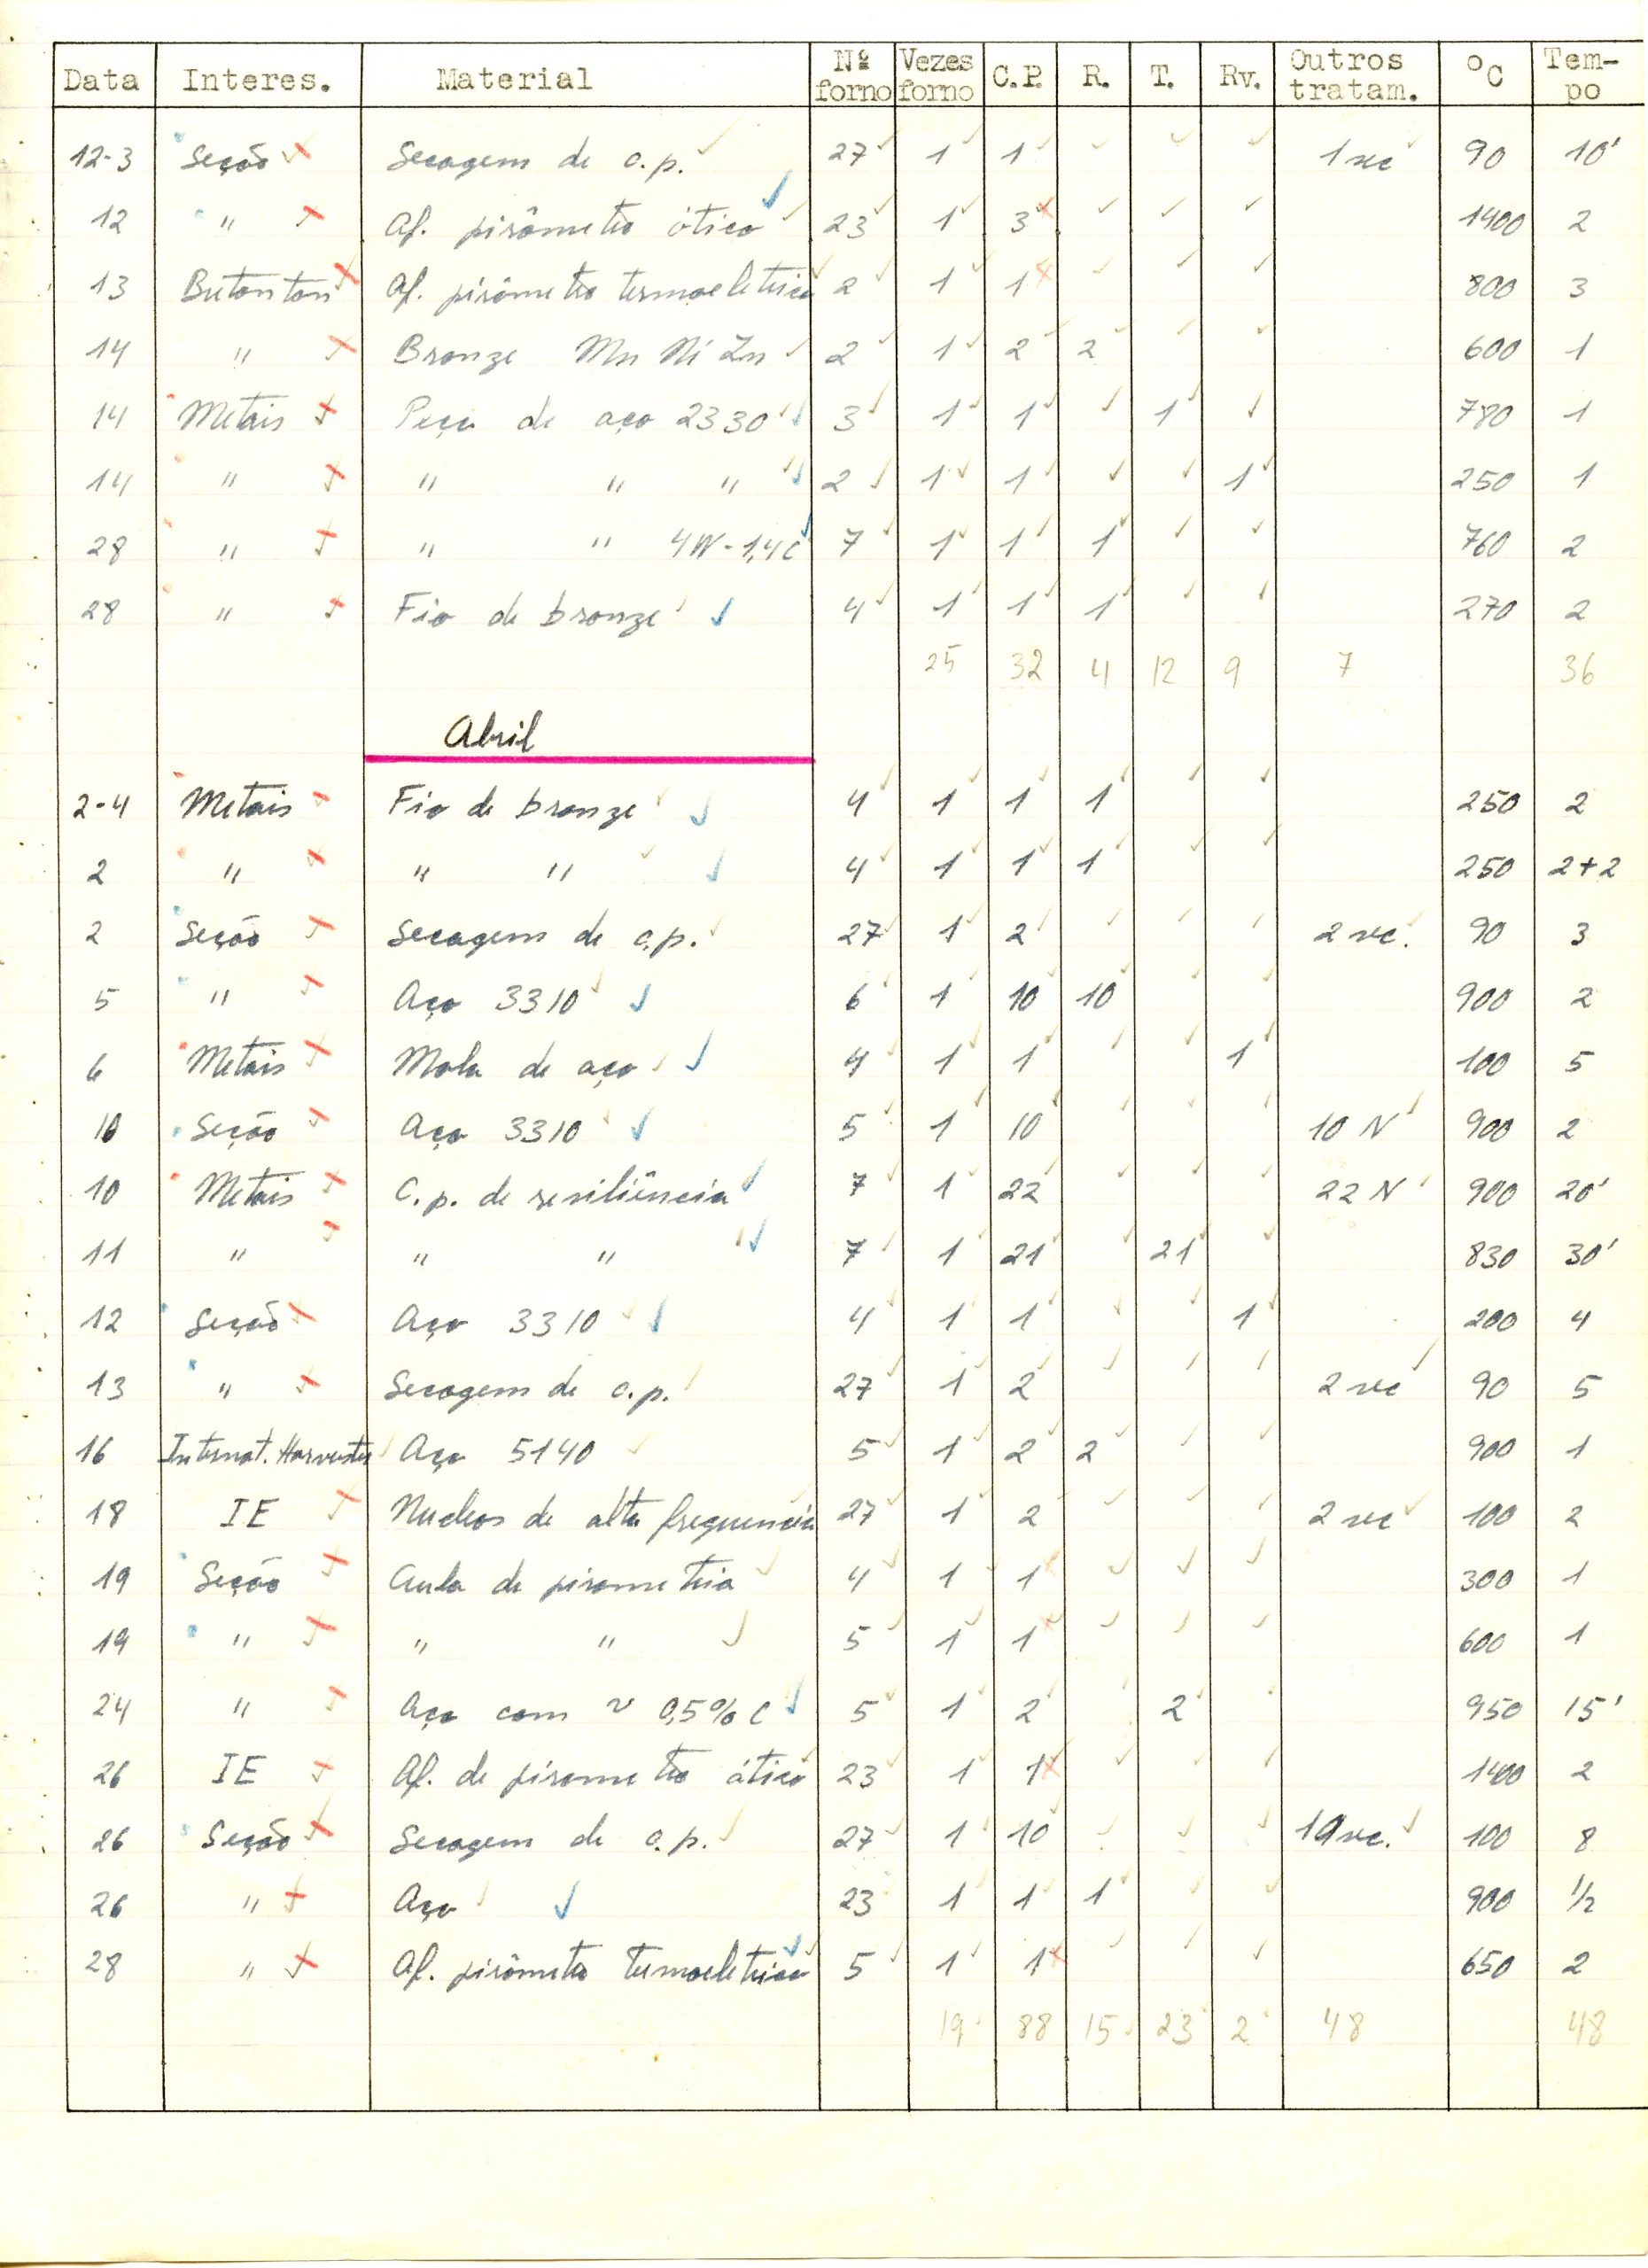 Data Interes. Material Nº forno Vezes forno C.P. R. T. Rv. Outros tratam. ºC Tem-po
12-3 Seção Secagem de c.p. 27 1 1 1 sec 90 10'
12 " Af. pirômetro ótico 23 1 3 1400 2
13 Butantan Af. pirômetro termoeletrico 2 1 1 800 3
14 " Bronze Mn Ni Zn 2 1 2 2 600 1
14 Metais Peça de aço 2330 3 1 1 1 780 1
14 " " " " 2 1 1 1 250 1
28 " " " 4W-1,4C 7 1 1 1 760 2
28 " Fio de bronze 4 1 1 1 270 2
25 32 4 12 9 7 36
Abril
2-4 Metais Fio de bronze 4 1 1 1 250 2
2 " " " 4 1 1 1 250 2+2
2 Seção Secagem de c.p. 27 1 2 2 sec. 90 3
5 " Aço 3310 6 1 10 10 900 2
6 Metais Mola de aço 4 1 1 1 100 5
10 Seção Aço 3310 5 1 10 10 N 900 2
10 Metais C.p. de resiliência 7 1 22 22 N 900 20'
11 " " " 7 1 21 21 830 30'
12 Seção Aço 3310 4 1 1 1 200 4
13 " Secagem de c.p. 27 1 2 2 sec 90 5
16 Internat. Harvester Aço 5140 5 1 2 2 900 1
18 IE Nucleos de alta frequencia 27 1 2 2 sec 100 2
19 Seção Aula de pirometria 4 1 1 300 1
19 " " " 5 1 1 600 1
24 " Aço com ~ 0,5% C 5 1 2 2 950 15'
26 IE Af. de pirometro ótico 23 1 1 1400 2
26 Seção Secagem de c.p. 27 1 10 10 sec. 100 8
26 " Aço 23 1 1 1 900 1/2
28 " Af. pirômetro termoeletrico 5 1 1 650 2
19 88 15 23 2 48 48